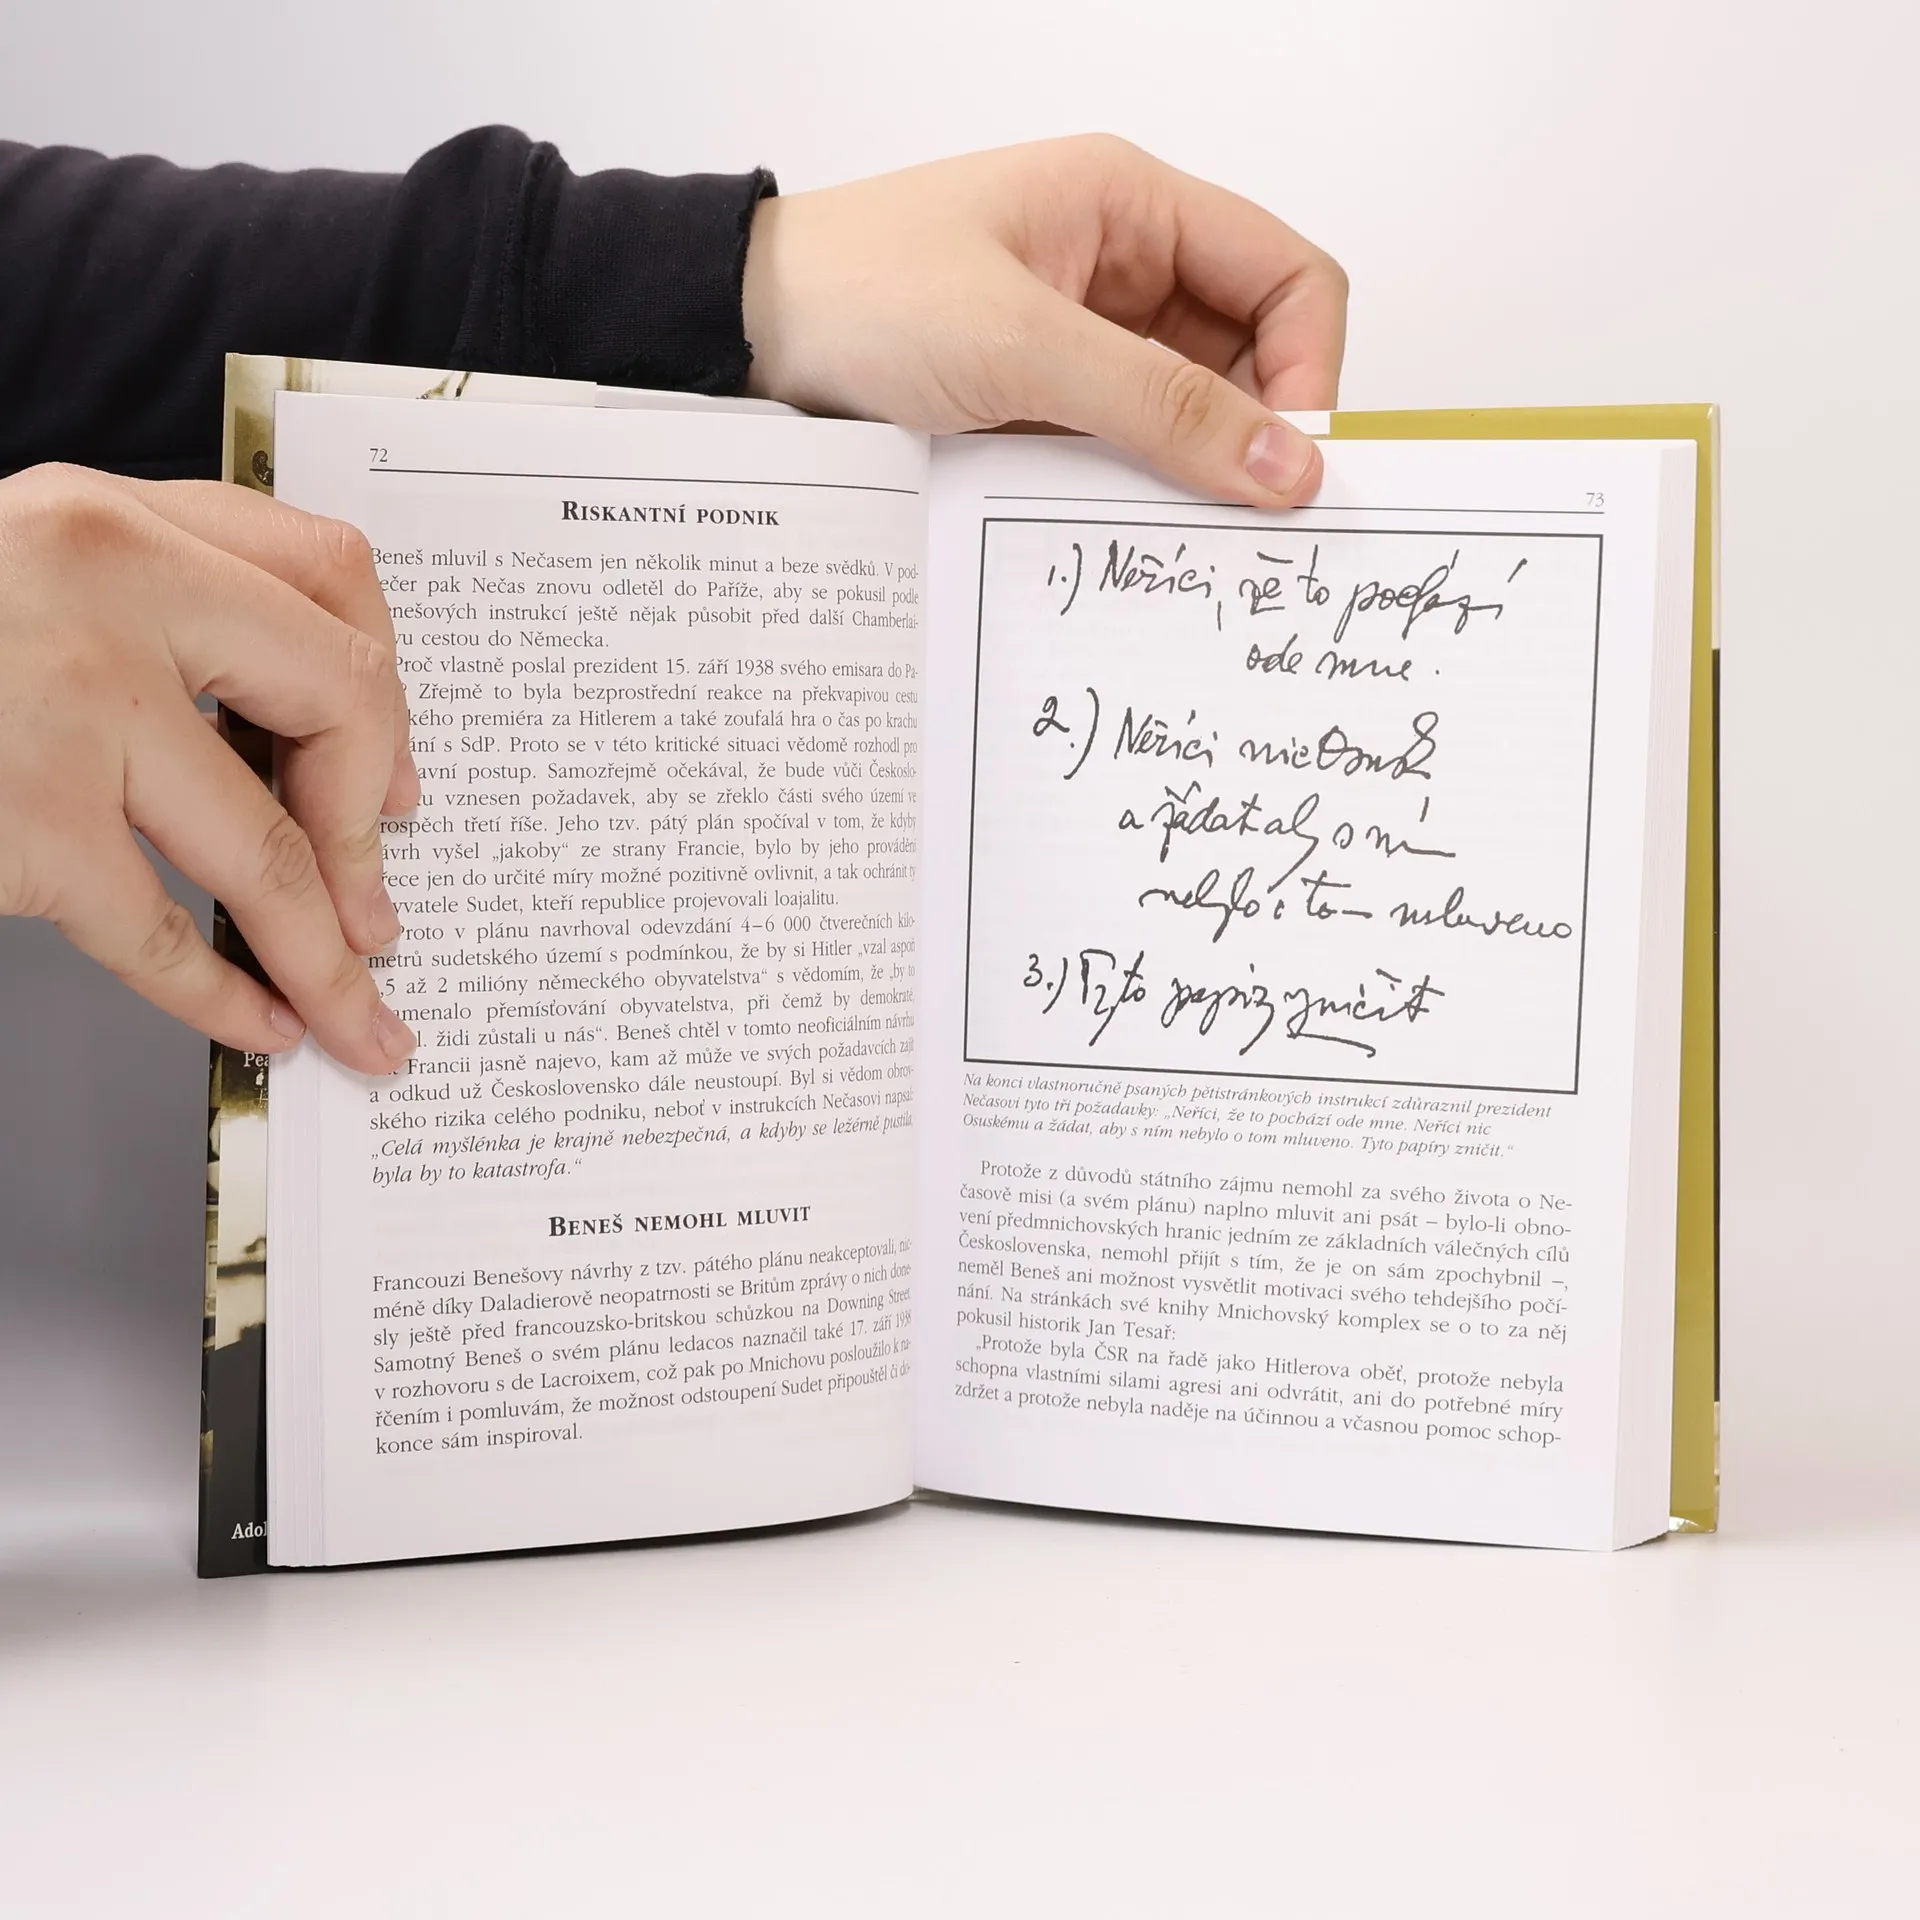 72
RISKANTNÍ PODNIK
Beneš mluvil s Nečasem jen několik minut a beze svědků. V pod-
ečer pak Nečas znovu odletěl do Paříže, aby se pokusil podle
enešových instrukcí ještě nějak působit před další Chamberlai-
vu cestou do Německa.
Proč vlastně poslal prezident 15. září 1938 svého emisara do Pa-
? Zřejmě to byla bezprostřední reakce na překvapivou cestu
kého premiéra za Hitlerem a také zoufalá hra o čas po krachu
ání s SdP. Proto se v této kritické situaci vědomě rozhodl pro
avní postup. Samozřejmě očekával, že bude vůči Českoslo-
u vznesen požadavek, aby se zřeklo části svého území ve
rospěch třetí říše. Jeho tzv. pátý plán spočíval v tom, že kdyby
ávrh vyšel „jakoby“ ze strany Francie, bylo by jeho provádění
řece jen do určité míry možné pozitivně ovlivnit, a tak ochránit ty
yvatele Sudet, kteří republice projevovali loajalitu.
Proto v plánu navrhoval odevzdání 4–6 000 čtverečních kilo-
metrů sudetského území s podmínkou, že by si Hitler „vzal aspoň
,5 až 2 milióny německého obyvatelstva“ s vědomím, že „by to
amenalo přemísťování obyvatelstva, při čemž by demokraté,
l. židi zůstali u nás“. Beneš chtěl v tomto neoficiálním návrhu
Francii jasně najevo, kam až může ve svých požadavcích zajít
a odkud už Československo dále neustoupí. Byl si vědom obrov-
ského rizika celého podniku, neboť v instrukcích Nečasovi napsal:
„Celá myšlénka je krajně nebezpečná, a kdyby se ležérně pustila,
byla by to katastrofa.“
BENEŠ NEMOHL MLUVIT
Francouzi Benešovy návrhy z tzv. pátého plánu neakceptovali, nic-
méně díky Daladierově neopatrnosti se Britům zprávy o nich done-
sly ještě před francouzsko-britskou schůzkou na Downing Street.
Samotný Beneš o svém plánu ledacos naznačil také 17. září 1938
v rozhovoru s de Lacroixem, což pak po Mnichovu posloužilo k na-
řčením i pomluvám, že možnost odstoupení Sudet připouštěl či do-
konce sám inspiroval.
Pea
Adol
73
1.) Neříci, že to pochází
ode mne.
2.) Neříci nic Osusk
a žádat aby s ním
nebylo o tom mluveno
3.) Tyto papíry zničit
Na konci vlastnoručně psaných pětistránkových instrukcí zdůraznil prezident
Nečasovi tyto tři požadavky: „Neříci, že to pochází ode mne. Neříci nic
Osuskému a žádat, aby s ním nebylo o tom mluveno. Tyto papíry zničit.“
Protože z důvodů státního zájmu nemohl za svého života o Ne-
časově misi (a svém plánu) naplno mluvit ani psát – bylo-li obno-
vení předmnichovských hranic jedním ze základních válečných cílů
Československa, nemohl přijít s tím, že je on sám zpochybnil –,
neměl Beneš ani možnost vysvětlit motivaci svého tehdejšího počí-
nání. Na stránkách své knihy Mnichovský komplex se o to za něj
pokusil historik Jan Tesař:
„Protože byla ČSR na řadě jako Hitlerova oběť, protože nebyla
schopna vlastními silami agresi ani odvrátit, ani do potřebné míry
zdržet a protože nebyla naděje na účinnou a včasnou pomoc schop-